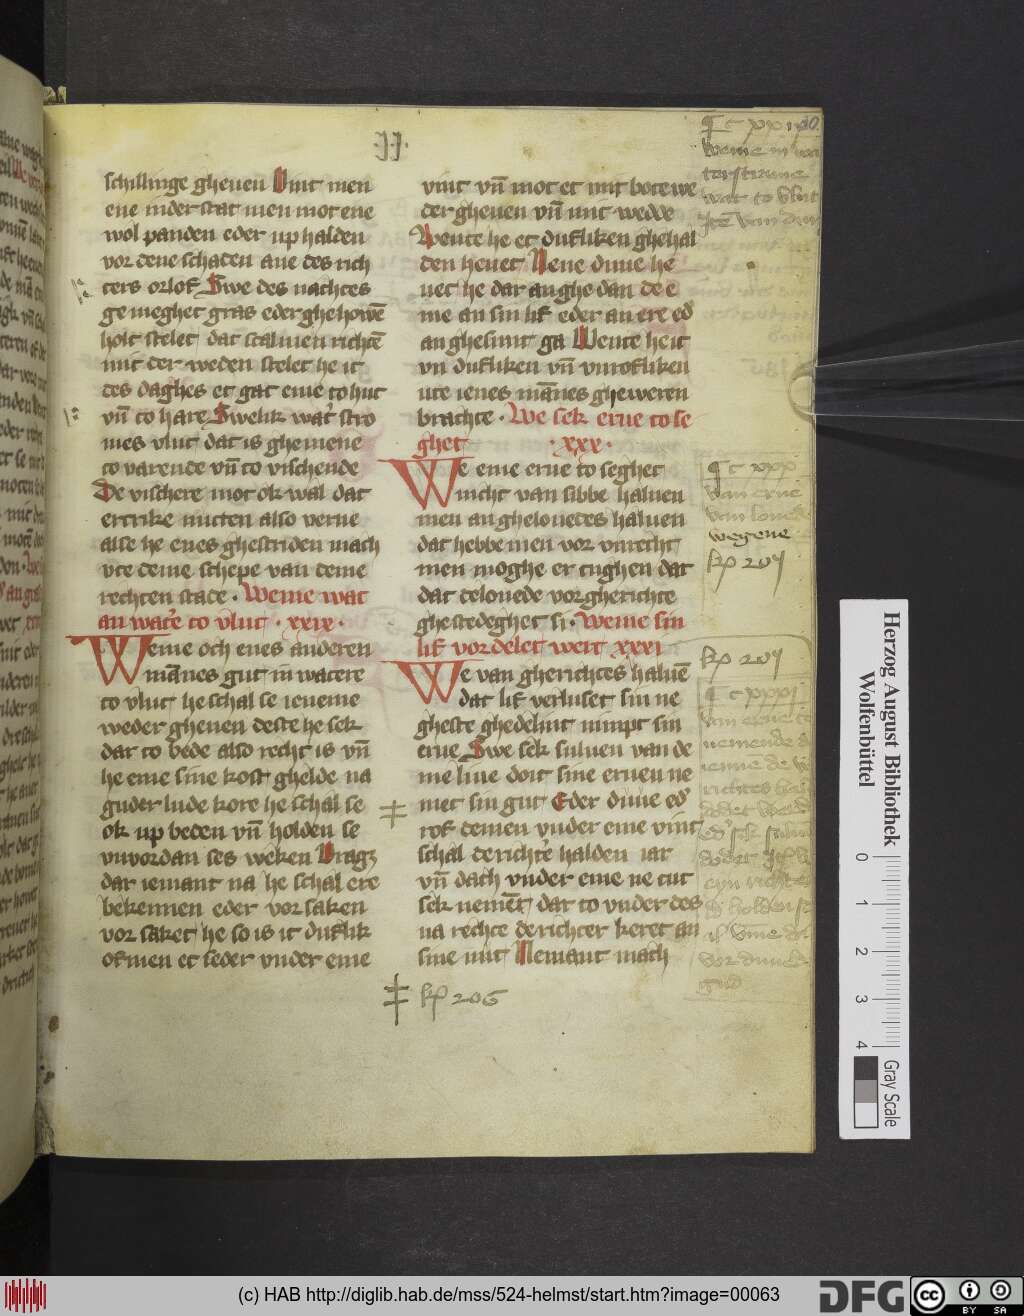 ·II·
schillinge gheuen Vint men
ene inder stat men mot ene
wol panden eder up halden
vor deme schaden ane des rich
ters orlof Swe des nachtes
gemeghet gras eder ghehowē
holt stelet dat scalmen richtē
mit der weden stelet he it
des daghes et gat eme to hut
vn̄ to hare Swelik wat̕ stro
mes vlut dat is ghemene
to varende vn̄ to vischende
De vischere mot ok wal dat
ertrike nutten also verne
alse he enes ghestriden mach
vte deme schepe van deme
rechten stade · Weme wat
an wat̕e to vlut · xxix ·
Weme och enes anderen
mānes gut in watere
to vlut he schal se ieneme
weder gheuen deste he sek
dar to bede also recht is vn̄
he eme sine kost ghelde na
guder lude kore he schal se
ok up beden vn̄ holden se
vnvordan ses weken Vragz
dar iemant na he schal ere
bekennen eder vor saken
vor saket he so is it dufik
of men et seder vnder eme
vint vn̄ mot et mit bote we
der gheuen vn̄ mit wedde
Wente he et dufliken ghehal
den heuet Nene duue he
uet he dar an ghe dan de e
me an sin lif eder an ere ed̕
an ghesunt ga Wente he it
vn dufliken vn̄ vnrofliken
ute ienes mānes gheweren
brachte · We sek erue to se
ghet · xxx ·
We eme erue to seghet
nicht van sibbe haluen
men an ghelouedes haluen
dat hebbe men vor vnrecht
men moghe er tughen dat
dat delouede vor gherichte
ghestedeghet si · Weme sin
lif vordelet wert xxxi
We van gherichtes haluē
dat lif verluset sin ne
gheste ghedelint nimpt sin
erue Swe sek suluen van de
me liue doit sine eruen ne
met sin gut Eder duue ed̕
rof demen vnder eme vint
schal de richt̕e halden iar
vn̄ dach vnder eme ne tut
sek nemēt dar to vnder des
na rechte de richter keret an
sine nut Nemant mach
kp 206
wegene
kp 207
kp 207
Herzog August Bibliothek
Wolfenbüttel
0 1 2 3 4
Gray Scale
(c) HAB http://diglib.hab.de/mss/524-helmst/start.htm?image=00063
DFG
CC BY SA